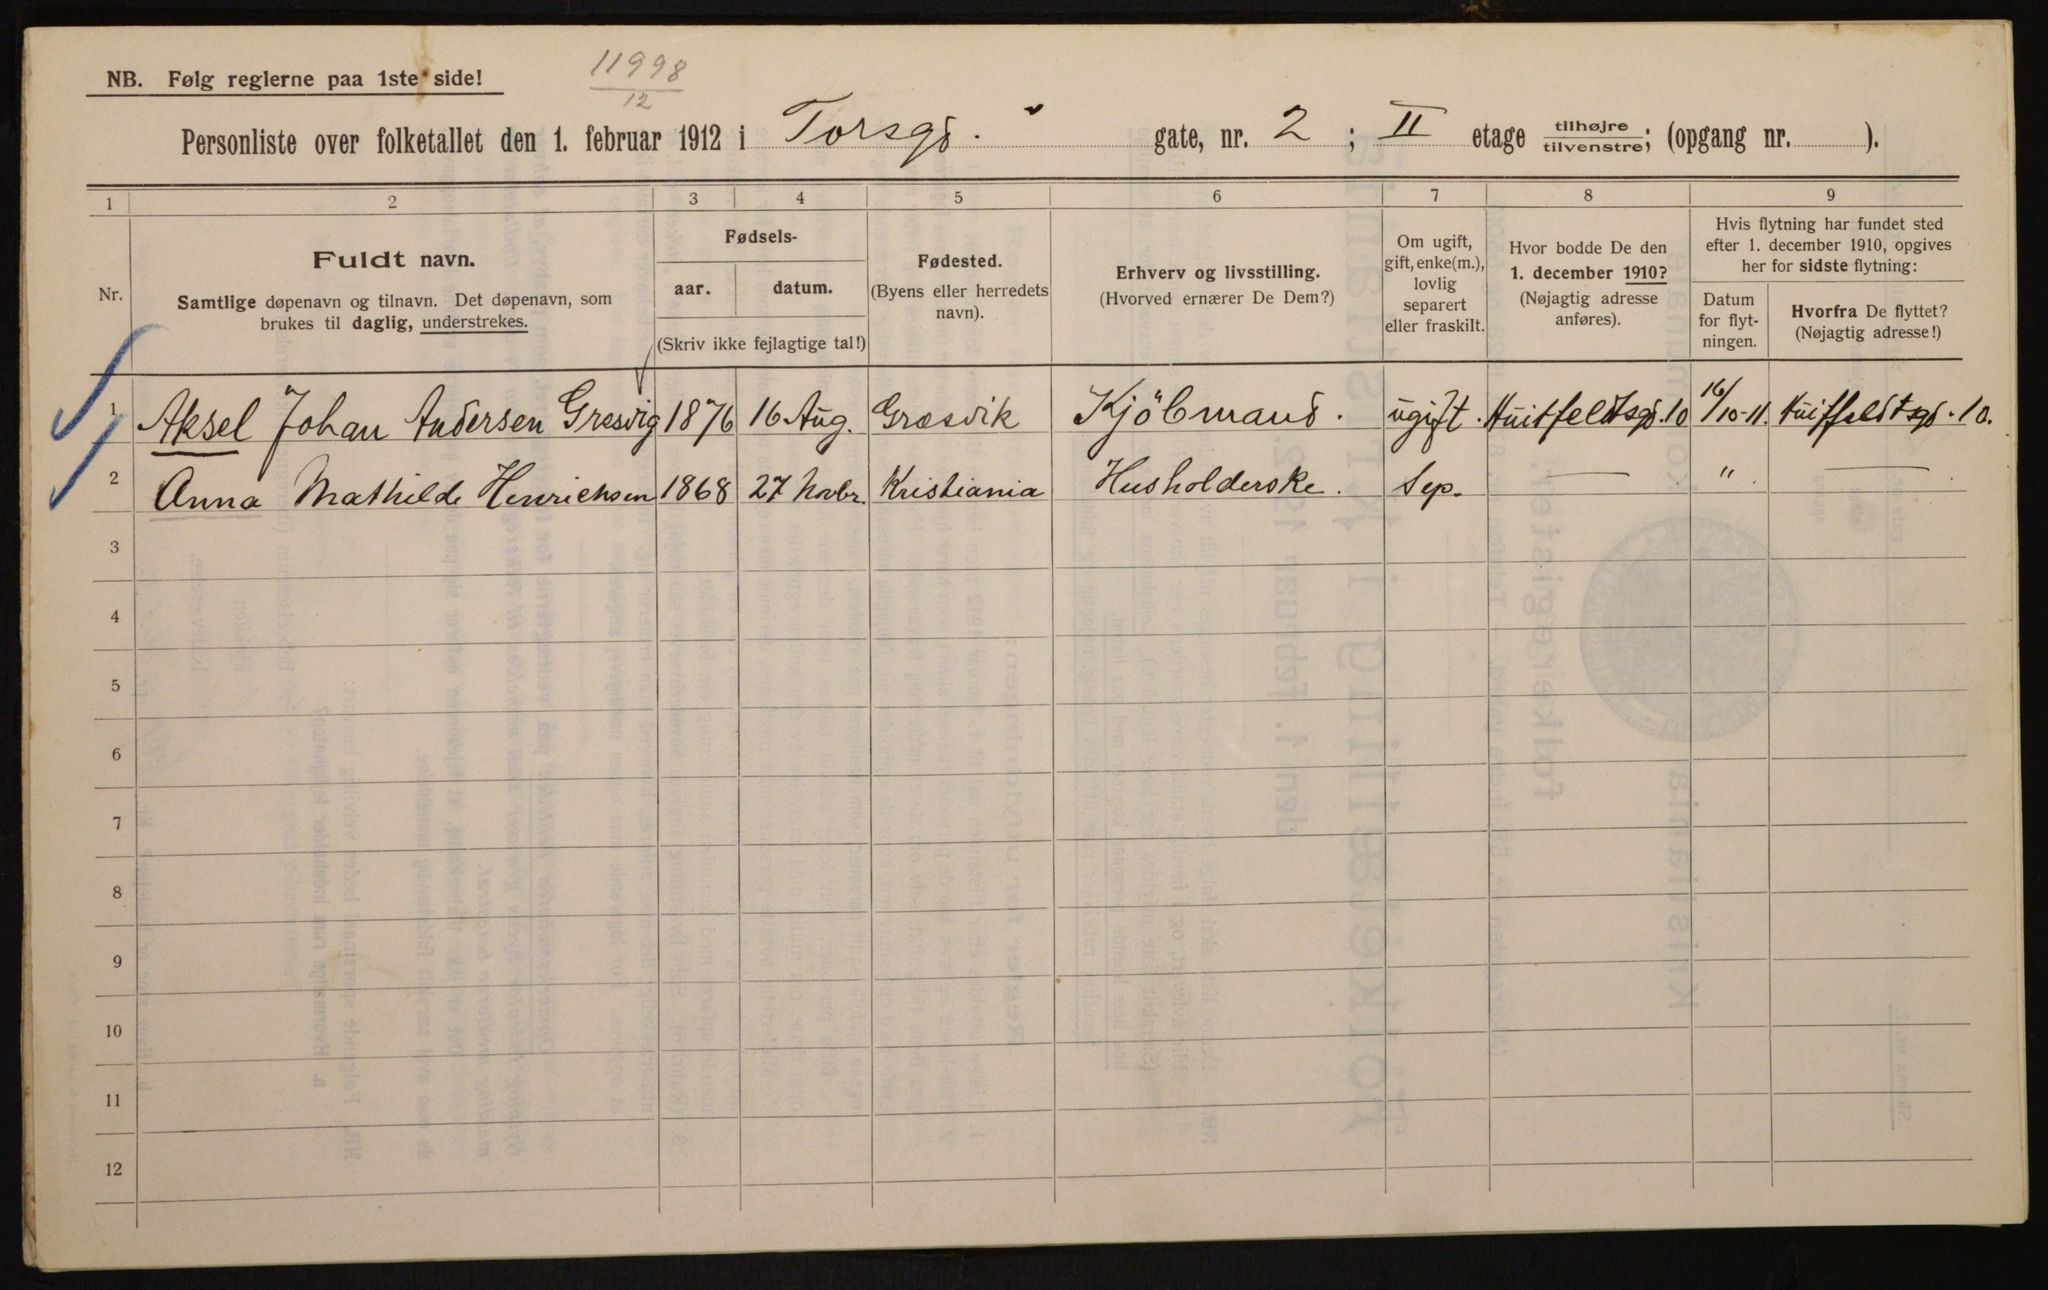 NB. Følg reglerne paa 1ste side!
11998
12
Personliste over folketallet den 1. februar 1912 i Torsgd. gate, nr. 2; II etage tilhøjre tilvenstre; (opgang nr. ).
1 2 3 4 5 6 7 8 9
Nr.
Fuldt navn.
Samtlige døpenavn og tilnavn. Det døpenavn, som
brukes til daglig, understrekes.
Fødsels-
aar. datum.
(Skriv ikke fejlagtige tal!)
Fødested.
(Byens eller herredets
navn).
Erhverv og livsstilling.
(Hvorved ernærer De Dem?)
Om ugift,
gift, enke(m.),
lovlig
separert
eller fraskilt.
Hvor bodde De den
1. december 1910?
(Nøjagtig adresse
anføres).
Hvis flytning har fundet sted
efter 1. december 1910, opgives
her for sidste flytning:
Datum
for flyt-
ningen.
Hvorfra De flyttet?
(Nøjagtig adresse!)
1 Aksel Johan Andersen Gresvig 1876 16 Aug. Græsvik Kjöbmand. ugift. Huitfeldtsgd. 10 16/10-11. Huitfeldtsgd. 10.
2 Anna Mathilde Henrichsen 1868 27 Novbr. Kristiania Husholderske. Sep. — " —
3
4
5
6
7
8
9
10
11
12